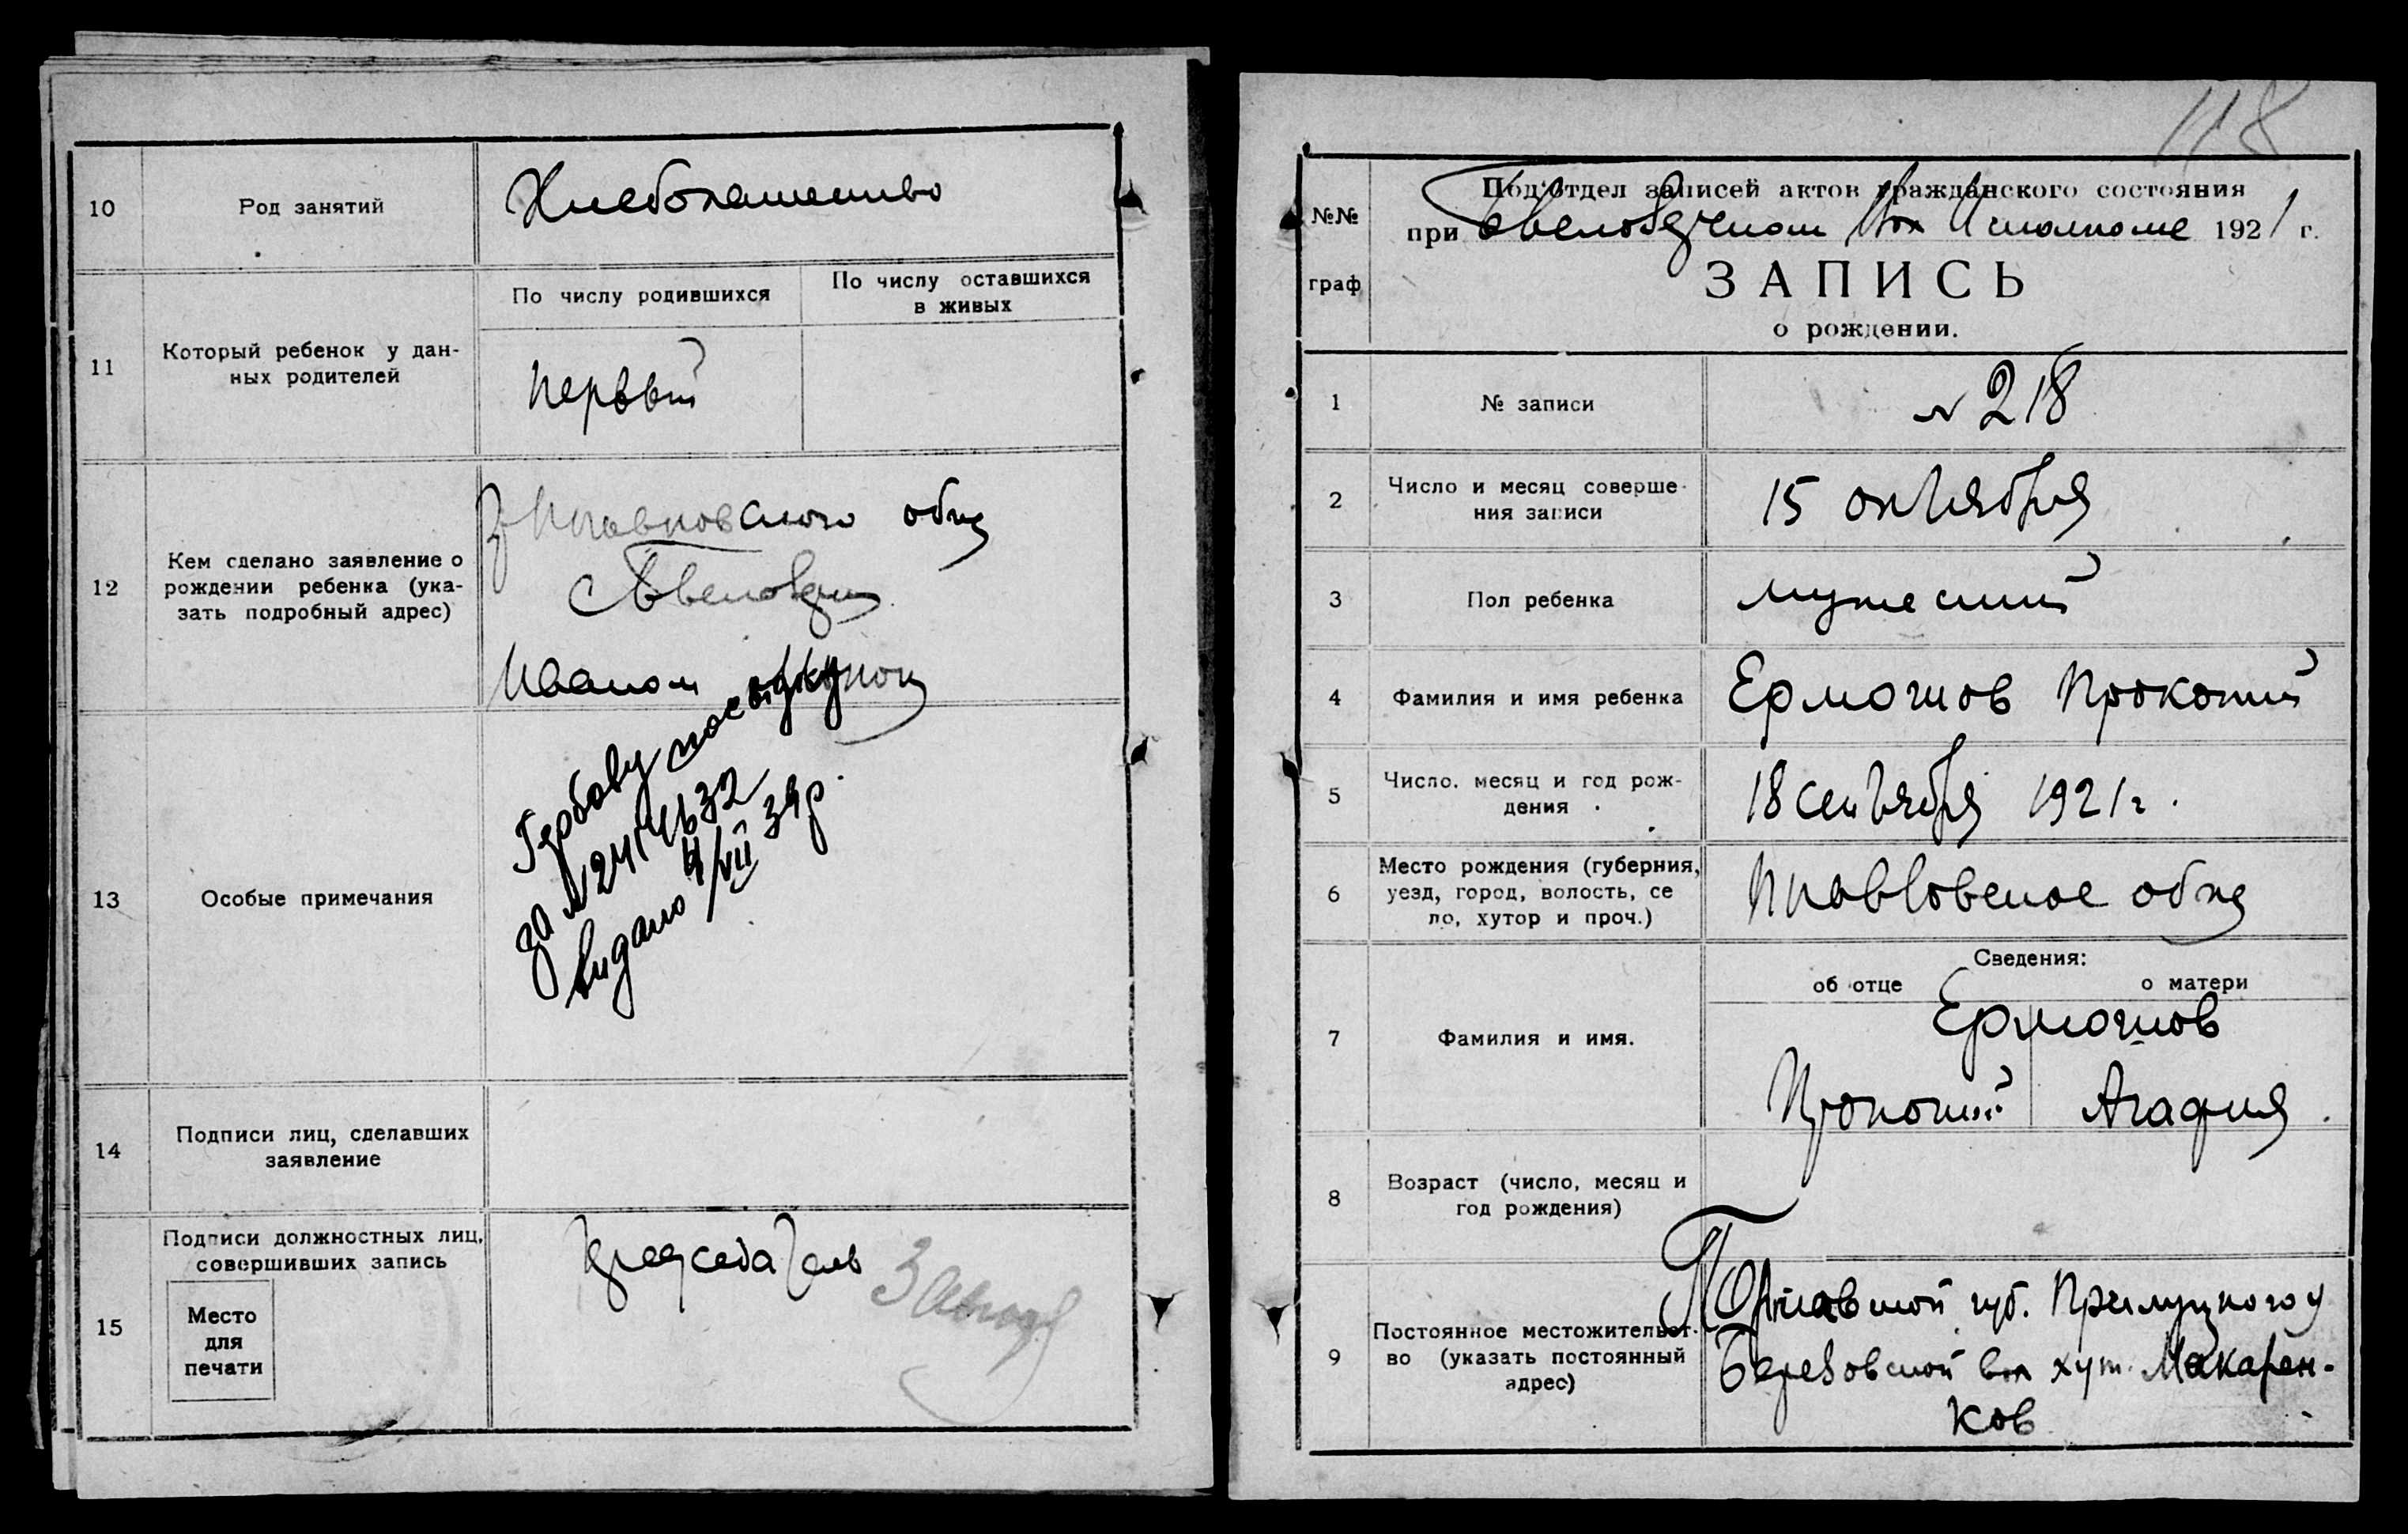 10
Род занятий
Хлебопашество
11
Который ребенок у дан-
ных родителей
По числу родившихся
По числу оставшихся
в живых
первый
12
Кем сделано заявление о
рождении ребенка (ука-
зать подробный адрес)
общ
Иваном
13
Особые примечания
Гербову
за №
видано 4/VII 39р.
14
Подписи лиц, сделавших
заявление
15
Подписи должностных лиц,
совершивших запись
Место
для
печати
Председатель
118
№№
граф
Под'отдел записей актов гражданского состояния
при Вол Исполкоме 1921 г.
ЗАПИСЬ
о рождении.
1
№ записи
№ 218
2
Число и месяц соверше-
ния записи
15 октября
3
Пол ребенка
мужеский
4
Фамилия и имя ребенка
Ермошов Прокопий
5
Число, месяц и год рож-
дения
18 сентября 1921 г.
6
Место рождения (губерния,
уезд, город, волость, се
ло, хутор и проч.)
общ
7
Фамилия и имя.
Сведения:
об отце
о матери
Ермошов
Прокопий
Агафия
8
Возраст (число, месяц и
год рождения)
9
Постоянное местожительст-
во (указать постоянный
адрес)
Полтавской губ. Прилуцкого у
Березовской вол хут. Макарен-
ков